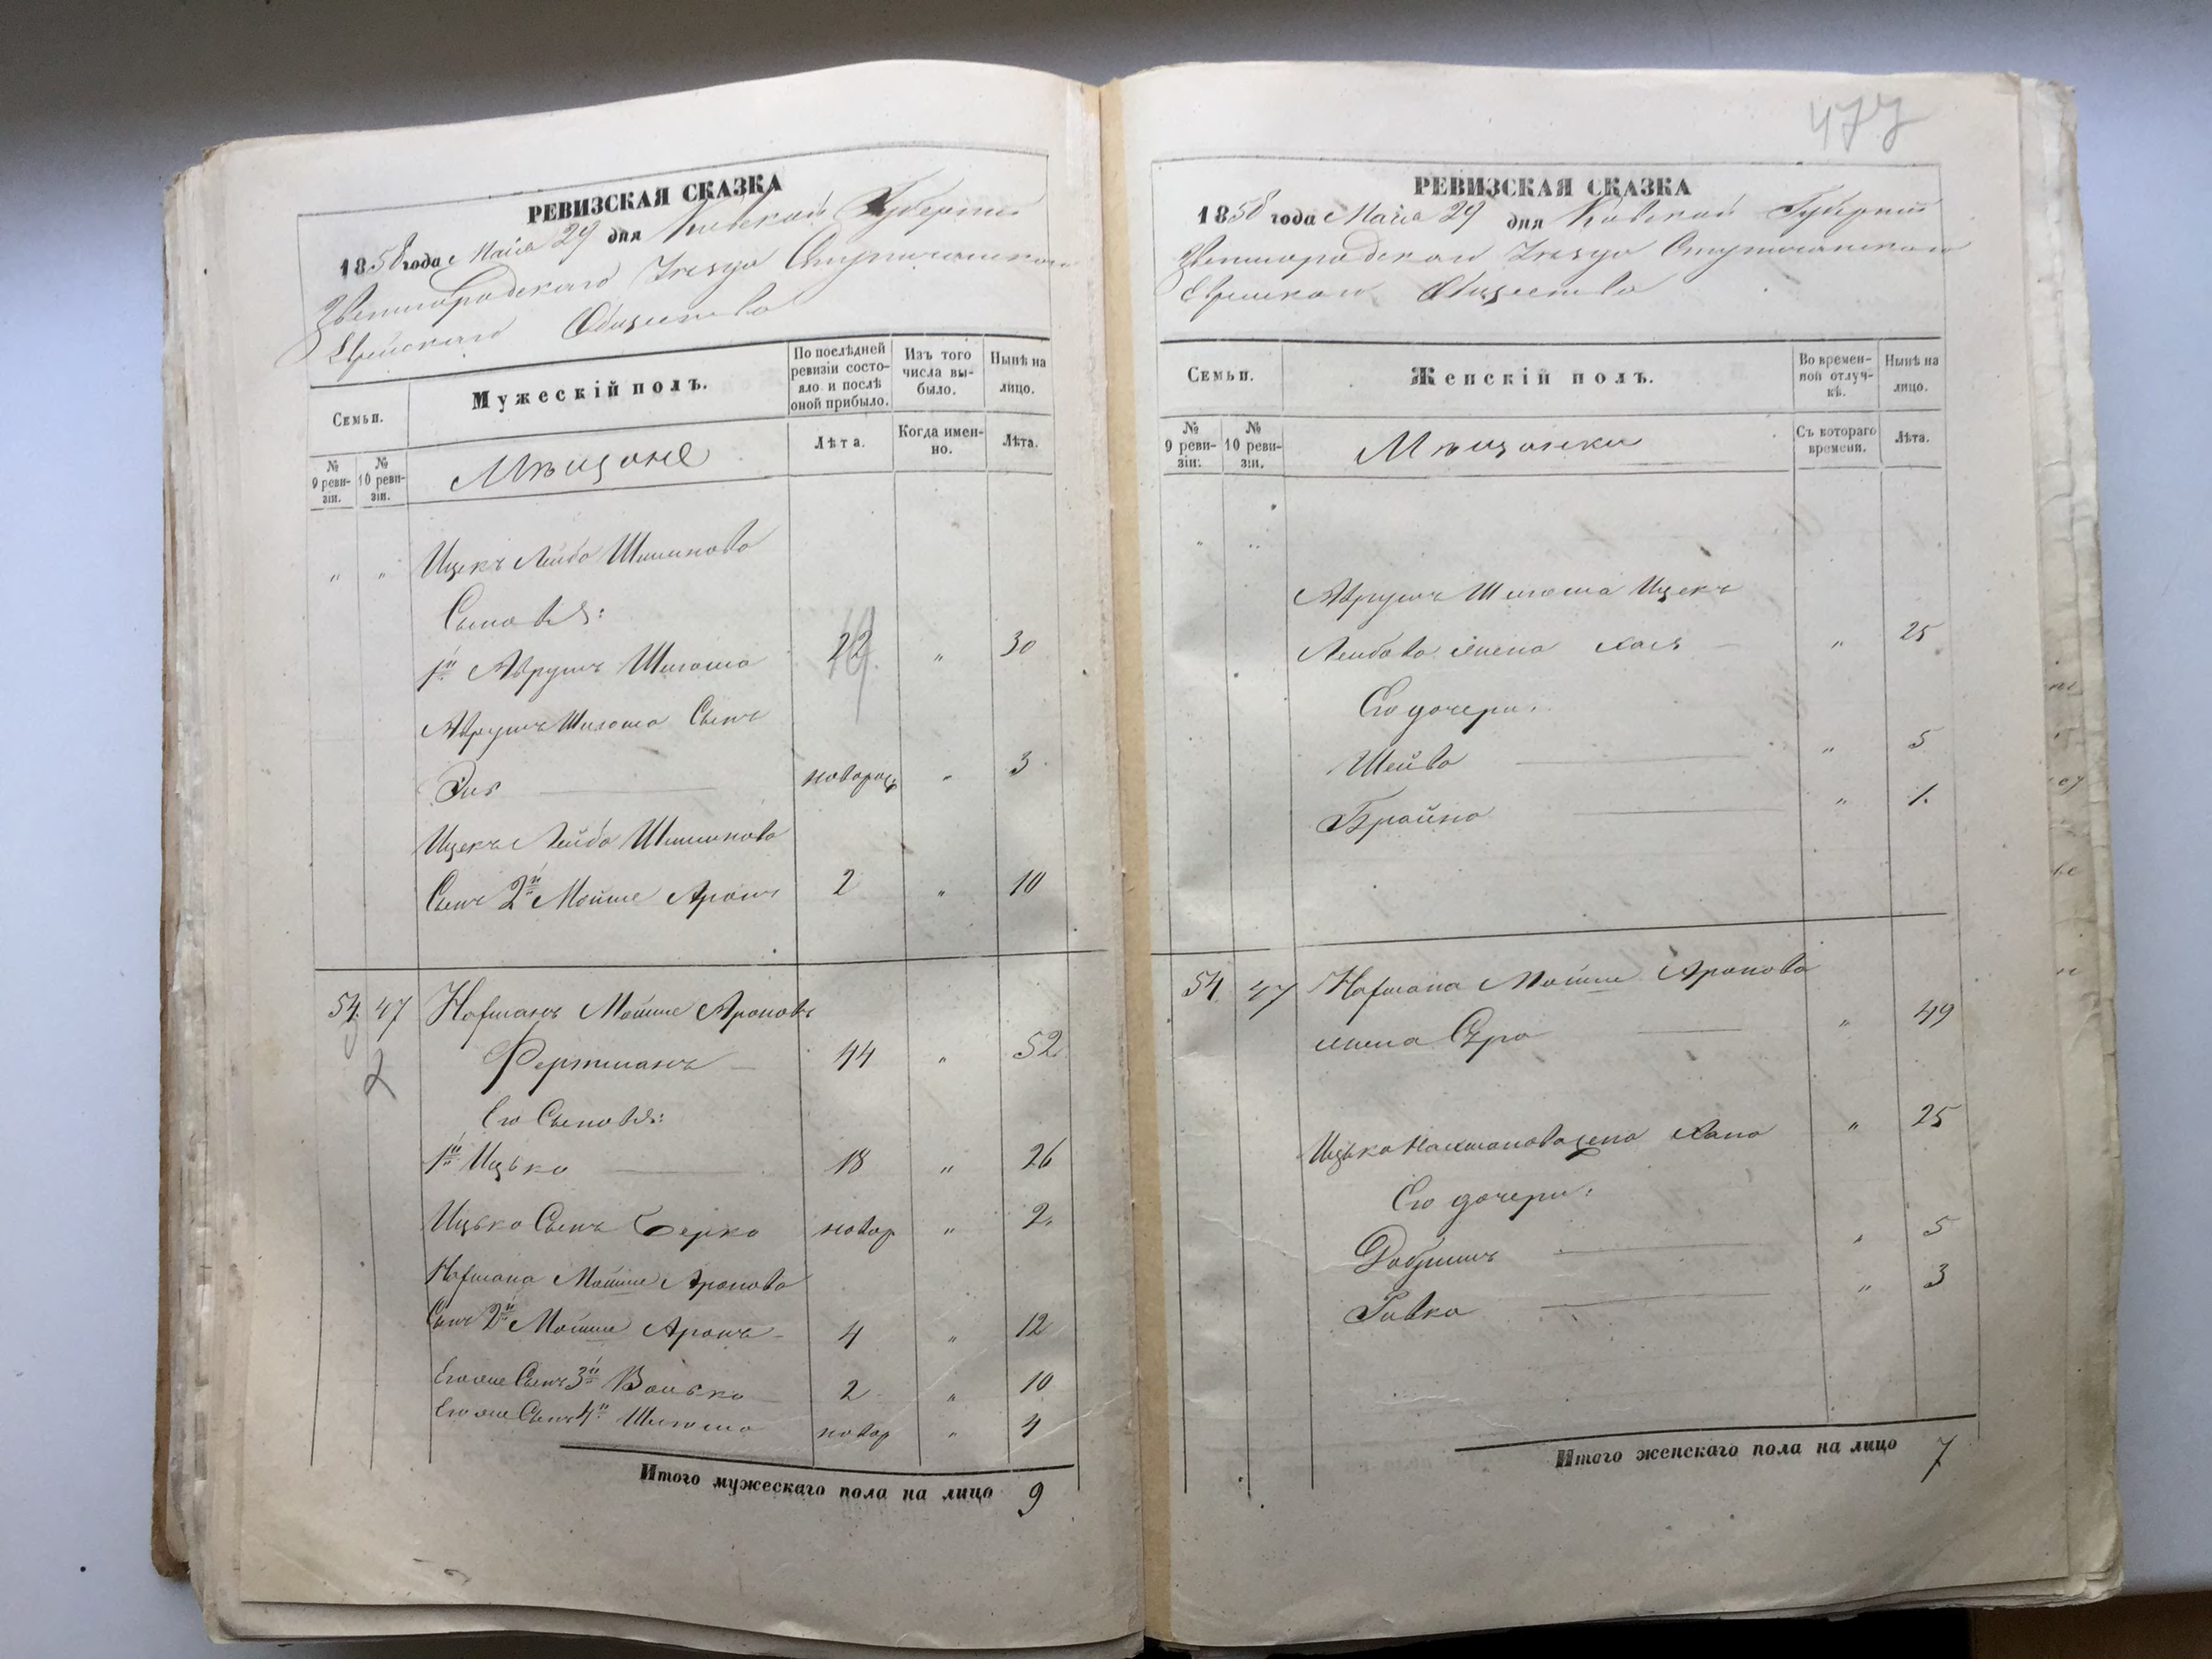 РЕВИЗСКАЯ СКАЗКА
1858 года Маія 29 дня Кіевской Губерніи
Звенигородскаго Уезда
Еврейскаго Общества
Семьи.
Мужескій полъ.
По послѣдней ревизіи состояло и послѣ оной прибыло.
Изъ того числа выбыло.
Нынѣ на лицо.
№ 9 ревизіи.
№ 10 ревизіи.
Мѣщане
Лѣта.
Когда именно.
Лѣта.
" " Ицекъ Лейба Шлимковa
Сыновья:
1й Аврумъ Шлёма 22 " 30
Аврумъ Шлёма Сынъ
новорож " 3
Ицекъ Лейба
Сынъ 2й Мойше Аронъ 2 " 10
54. 47 Нахманъ Мойше Ароновъ
2
Фертманъ 44 " 52
Его Сыновья:
1й Ицько 18 " 26
Ицько Сынъ Берко новор " 2
Нахмана Мойше Аронова
Сынъ 2й Мойше Аронъ 4 " 12
Его же Сынъ 3й Волько 2 " 10
Его же Сынъ 4й Шлёма новор " 4
Итого мужескаго пола на лицо 9
477
РЕВИЗСКАЯ СКАЗКА
1858 года Маія 29 дня Кіевской Губерніи
Звенигородскаго Уезда
Еврейскаго Общества
Семьи.
Женскій полъ.
Во временной отлучкѣ.
Нынѣ на лицо.
№ 9 ревизіи.
№ 10 ревизіи.
Мѣщанки
Съ котораго времени.
Лѣта.
" " Аврумъ Шлёма Ицекъ
Лейбова жена Хася " 25
Его дочери:
Шейва " 5
Брайна " 1.
54 47 Нахмана Мойше Аронова
жена Сура " 49
Ицька Нахманова жена Хана " 25
Его дочери:
Добришъ " 5
Ривка " 3
Итого женскаго пола на лицо 7